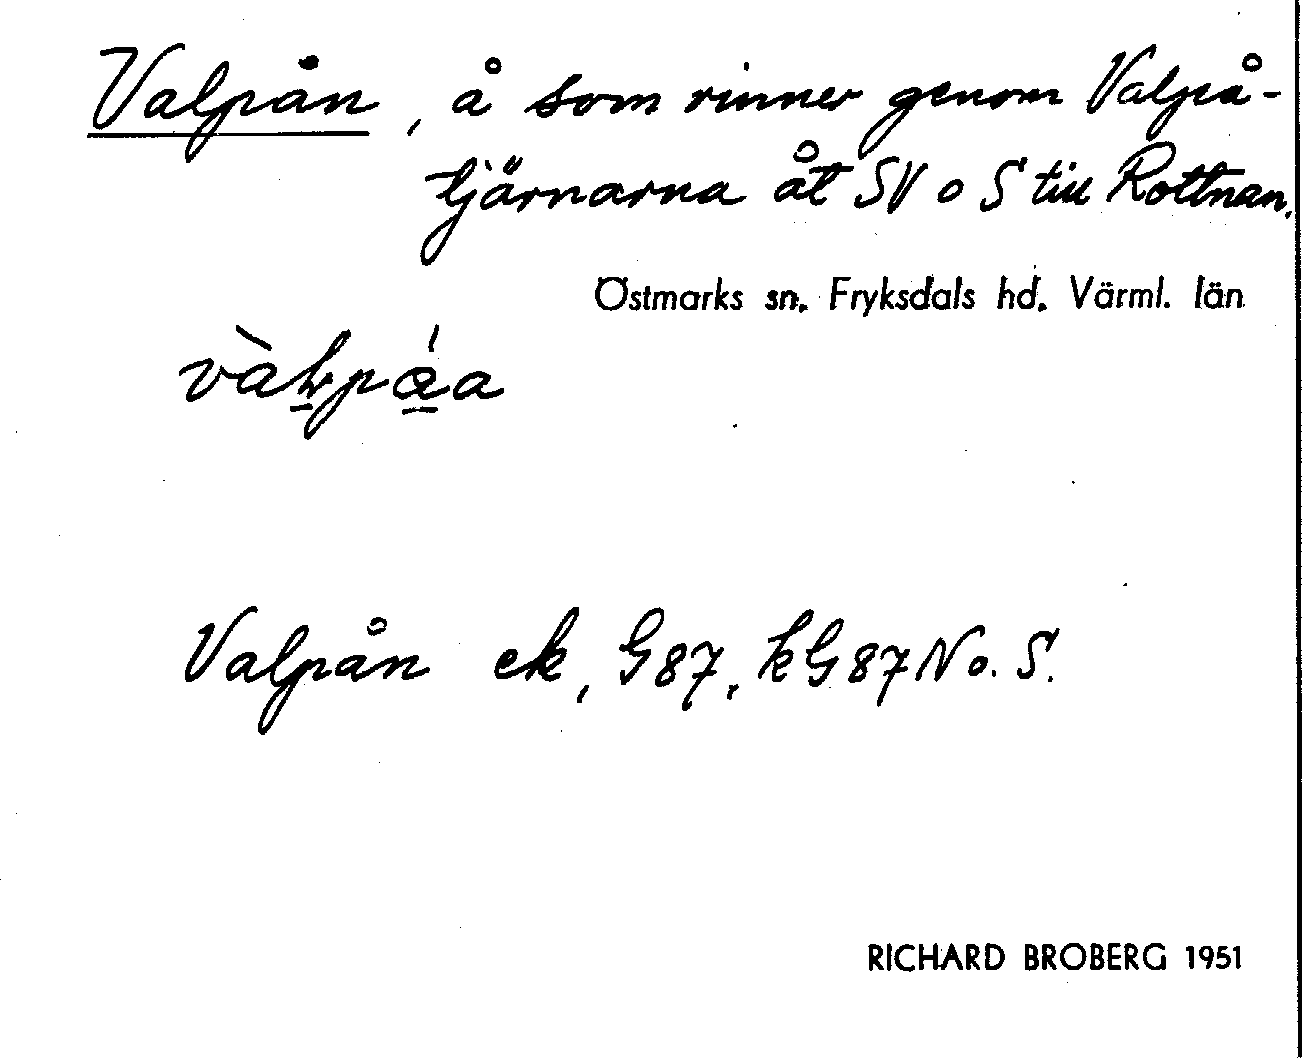 Valpån, å som rinner genom Valpå-
tjärnarna åt SV o S till Rottnan.
Östmarks sn. Fryksdals hd. Värml. län
Valpån ek, G87, kG87 No. S.
RICHARD BROBERG 1951